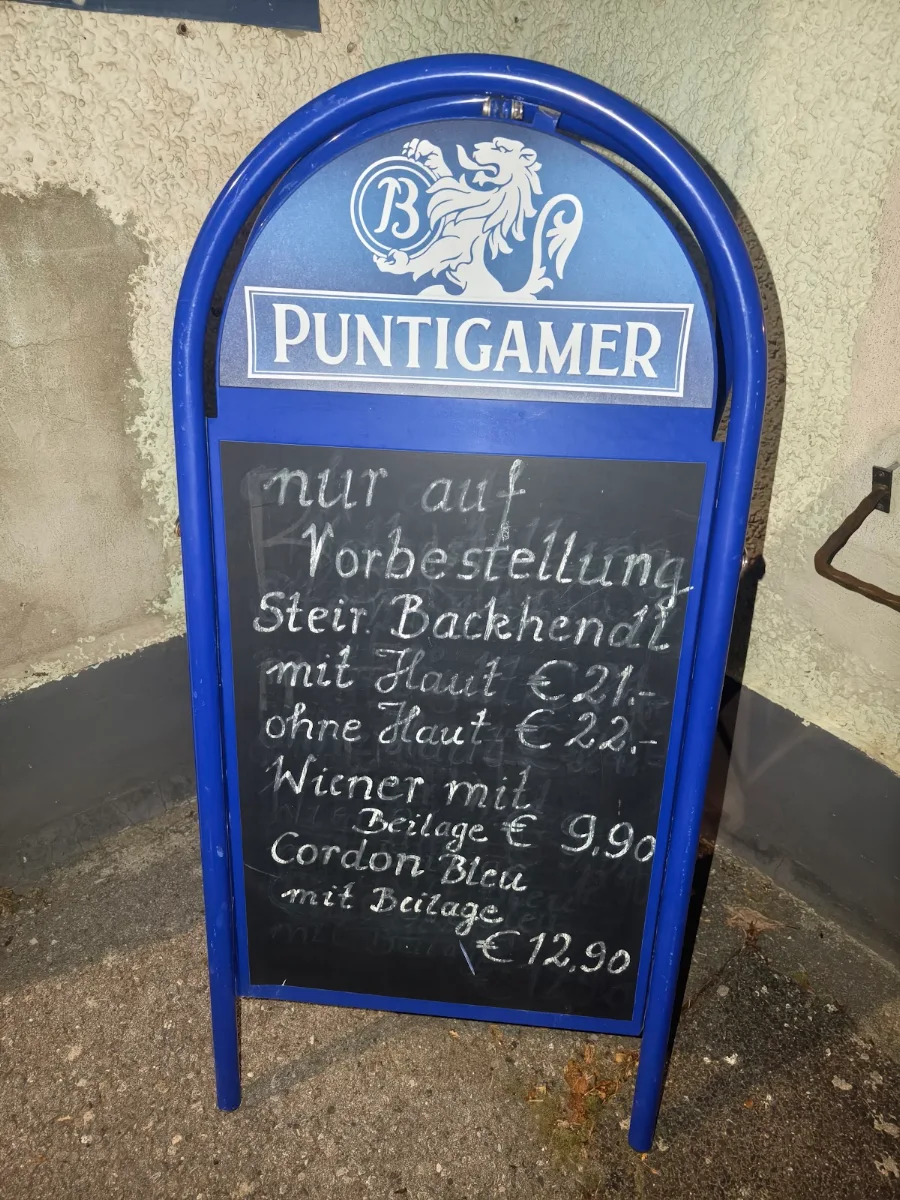 B
PUNTIGAMER
nur auf
Vorbestellung
Steir. Backhendl
mit Haut € 21.-
ohne Haut € 22.-
Wiener mit
Beilage € 9,90
Cordon Bleu
mit Beilage
€ 12,90